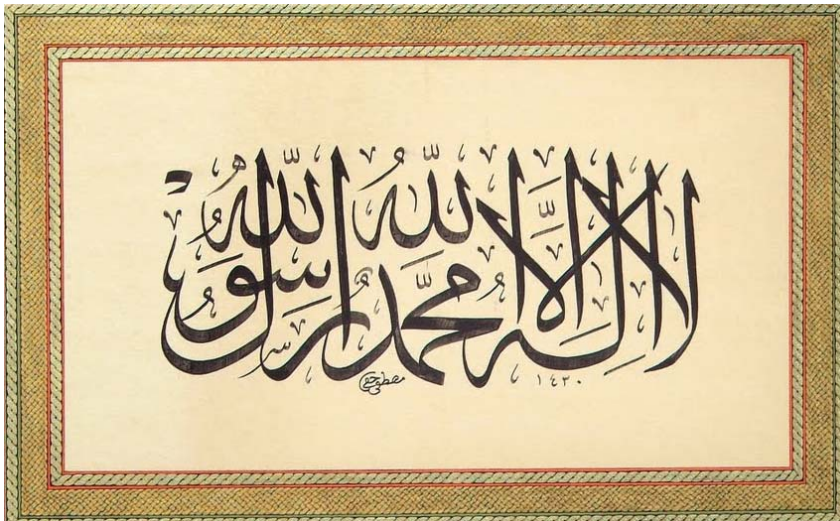 لا إله إلا الله محمد رسول الله
مصطفى حقي
١٤٢٠